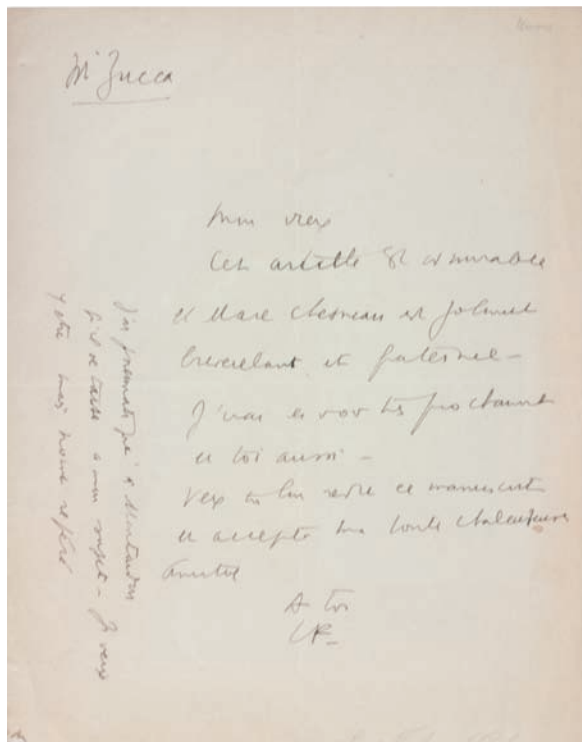 Mr Zucca
Mon vieux
Cet article est admirable
et Marc Chesneau est joliment
bienveillant et fraternel -
J'irai le voir très prochainement
et toi aussi -
Veux tu lui redre ce manuscrit
et accepte ma toute chaleureuse
amitié
A toi
J'ai à Montandon
qu'il se taise à mon sujet - Je veux
y être mais